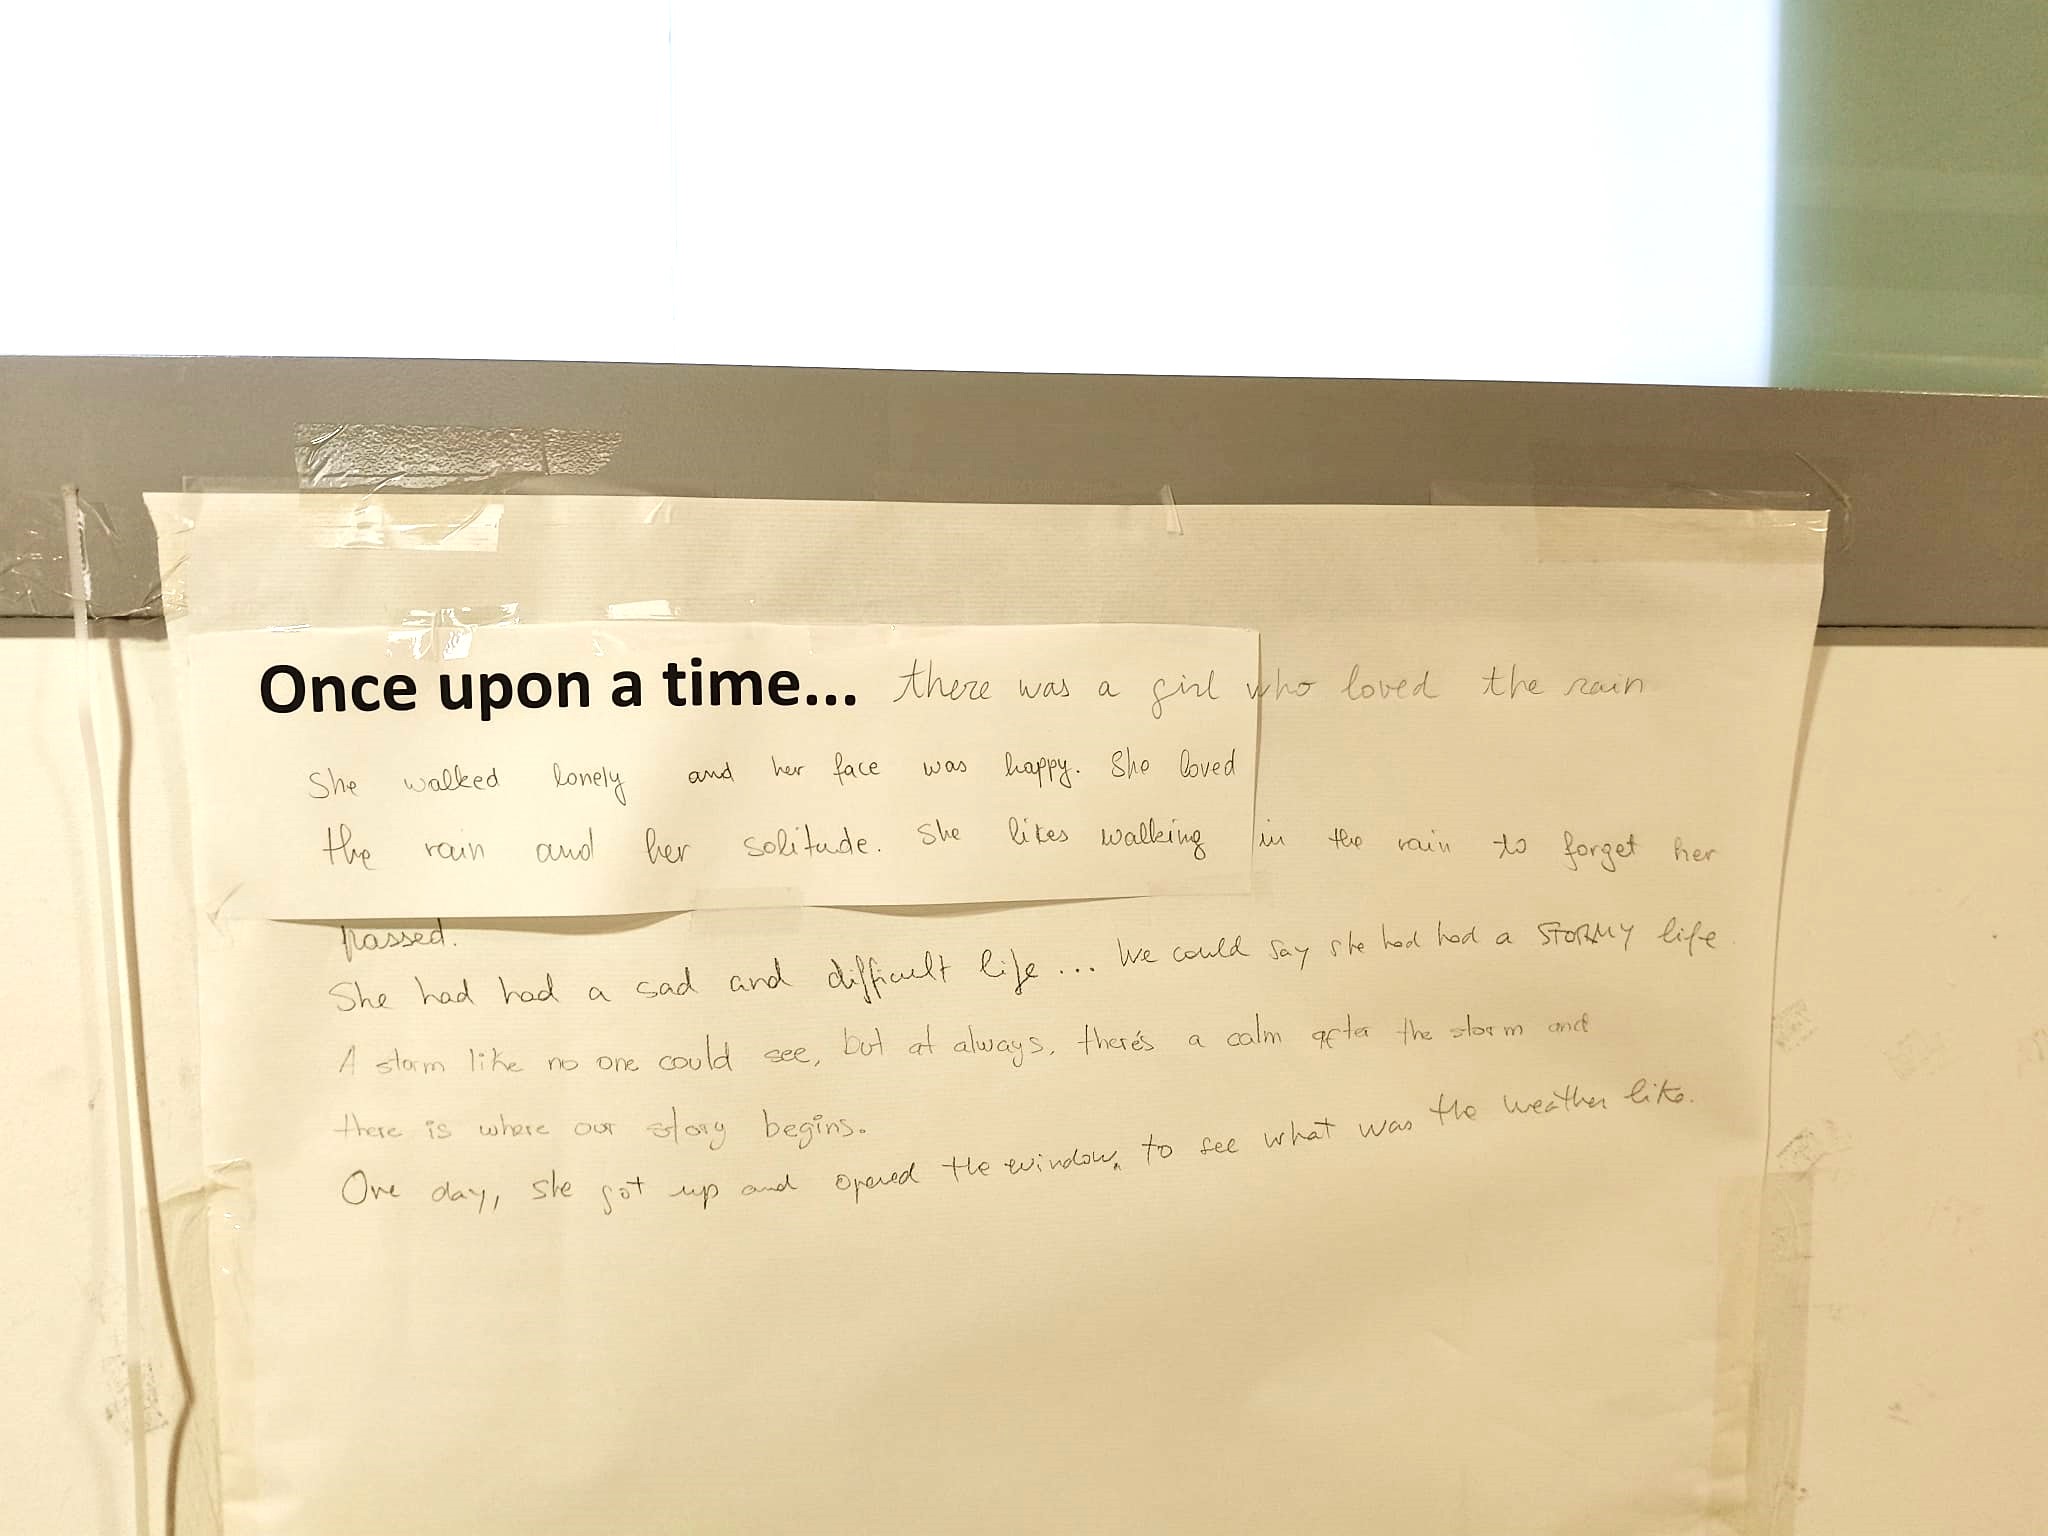 Once upon a time... there was a girl who loved the rain
She walked lonely and her face was happy. She loved
the rain and her solitude. She likes walking in the rain to forget her
passed.
She had had a sad and difficult life... We could say she had had a STORMY life
A storm like no one could see, but at always, there's a calm after the storm and
there is where our story begins.
One day, she got up and opened the window, to see what was the weather like.